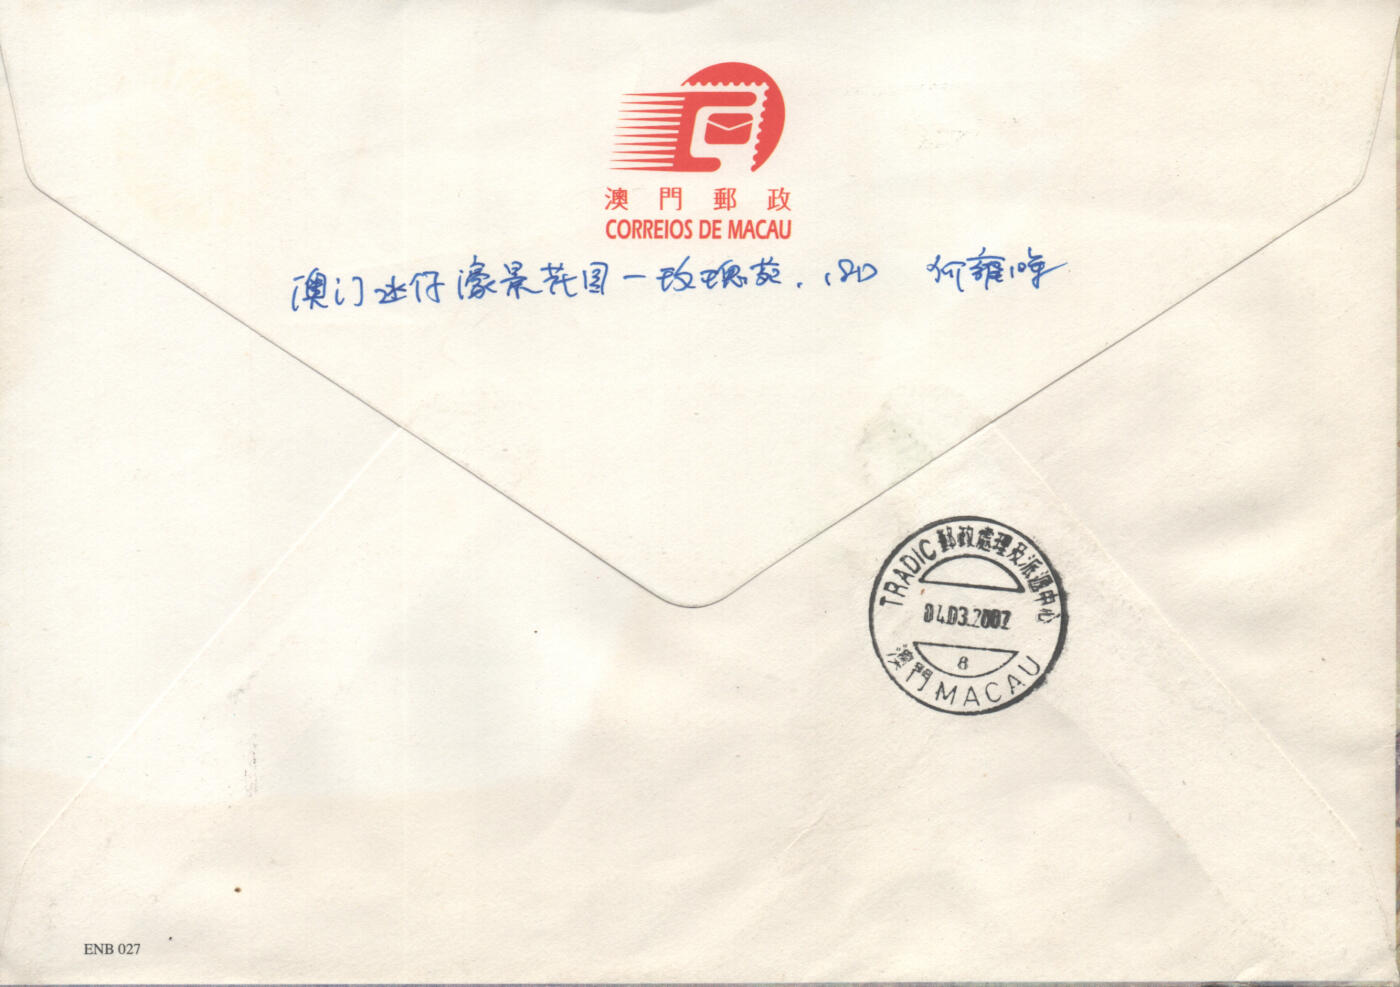 澳門郵政
CORREIOS DE MACAU
澳门氹仔濠景花园一玫瑰苑,18D 何
TRADIC 郵政處理及派遞中心
04.03.2002
8
澳門 MACAU
ENB 027